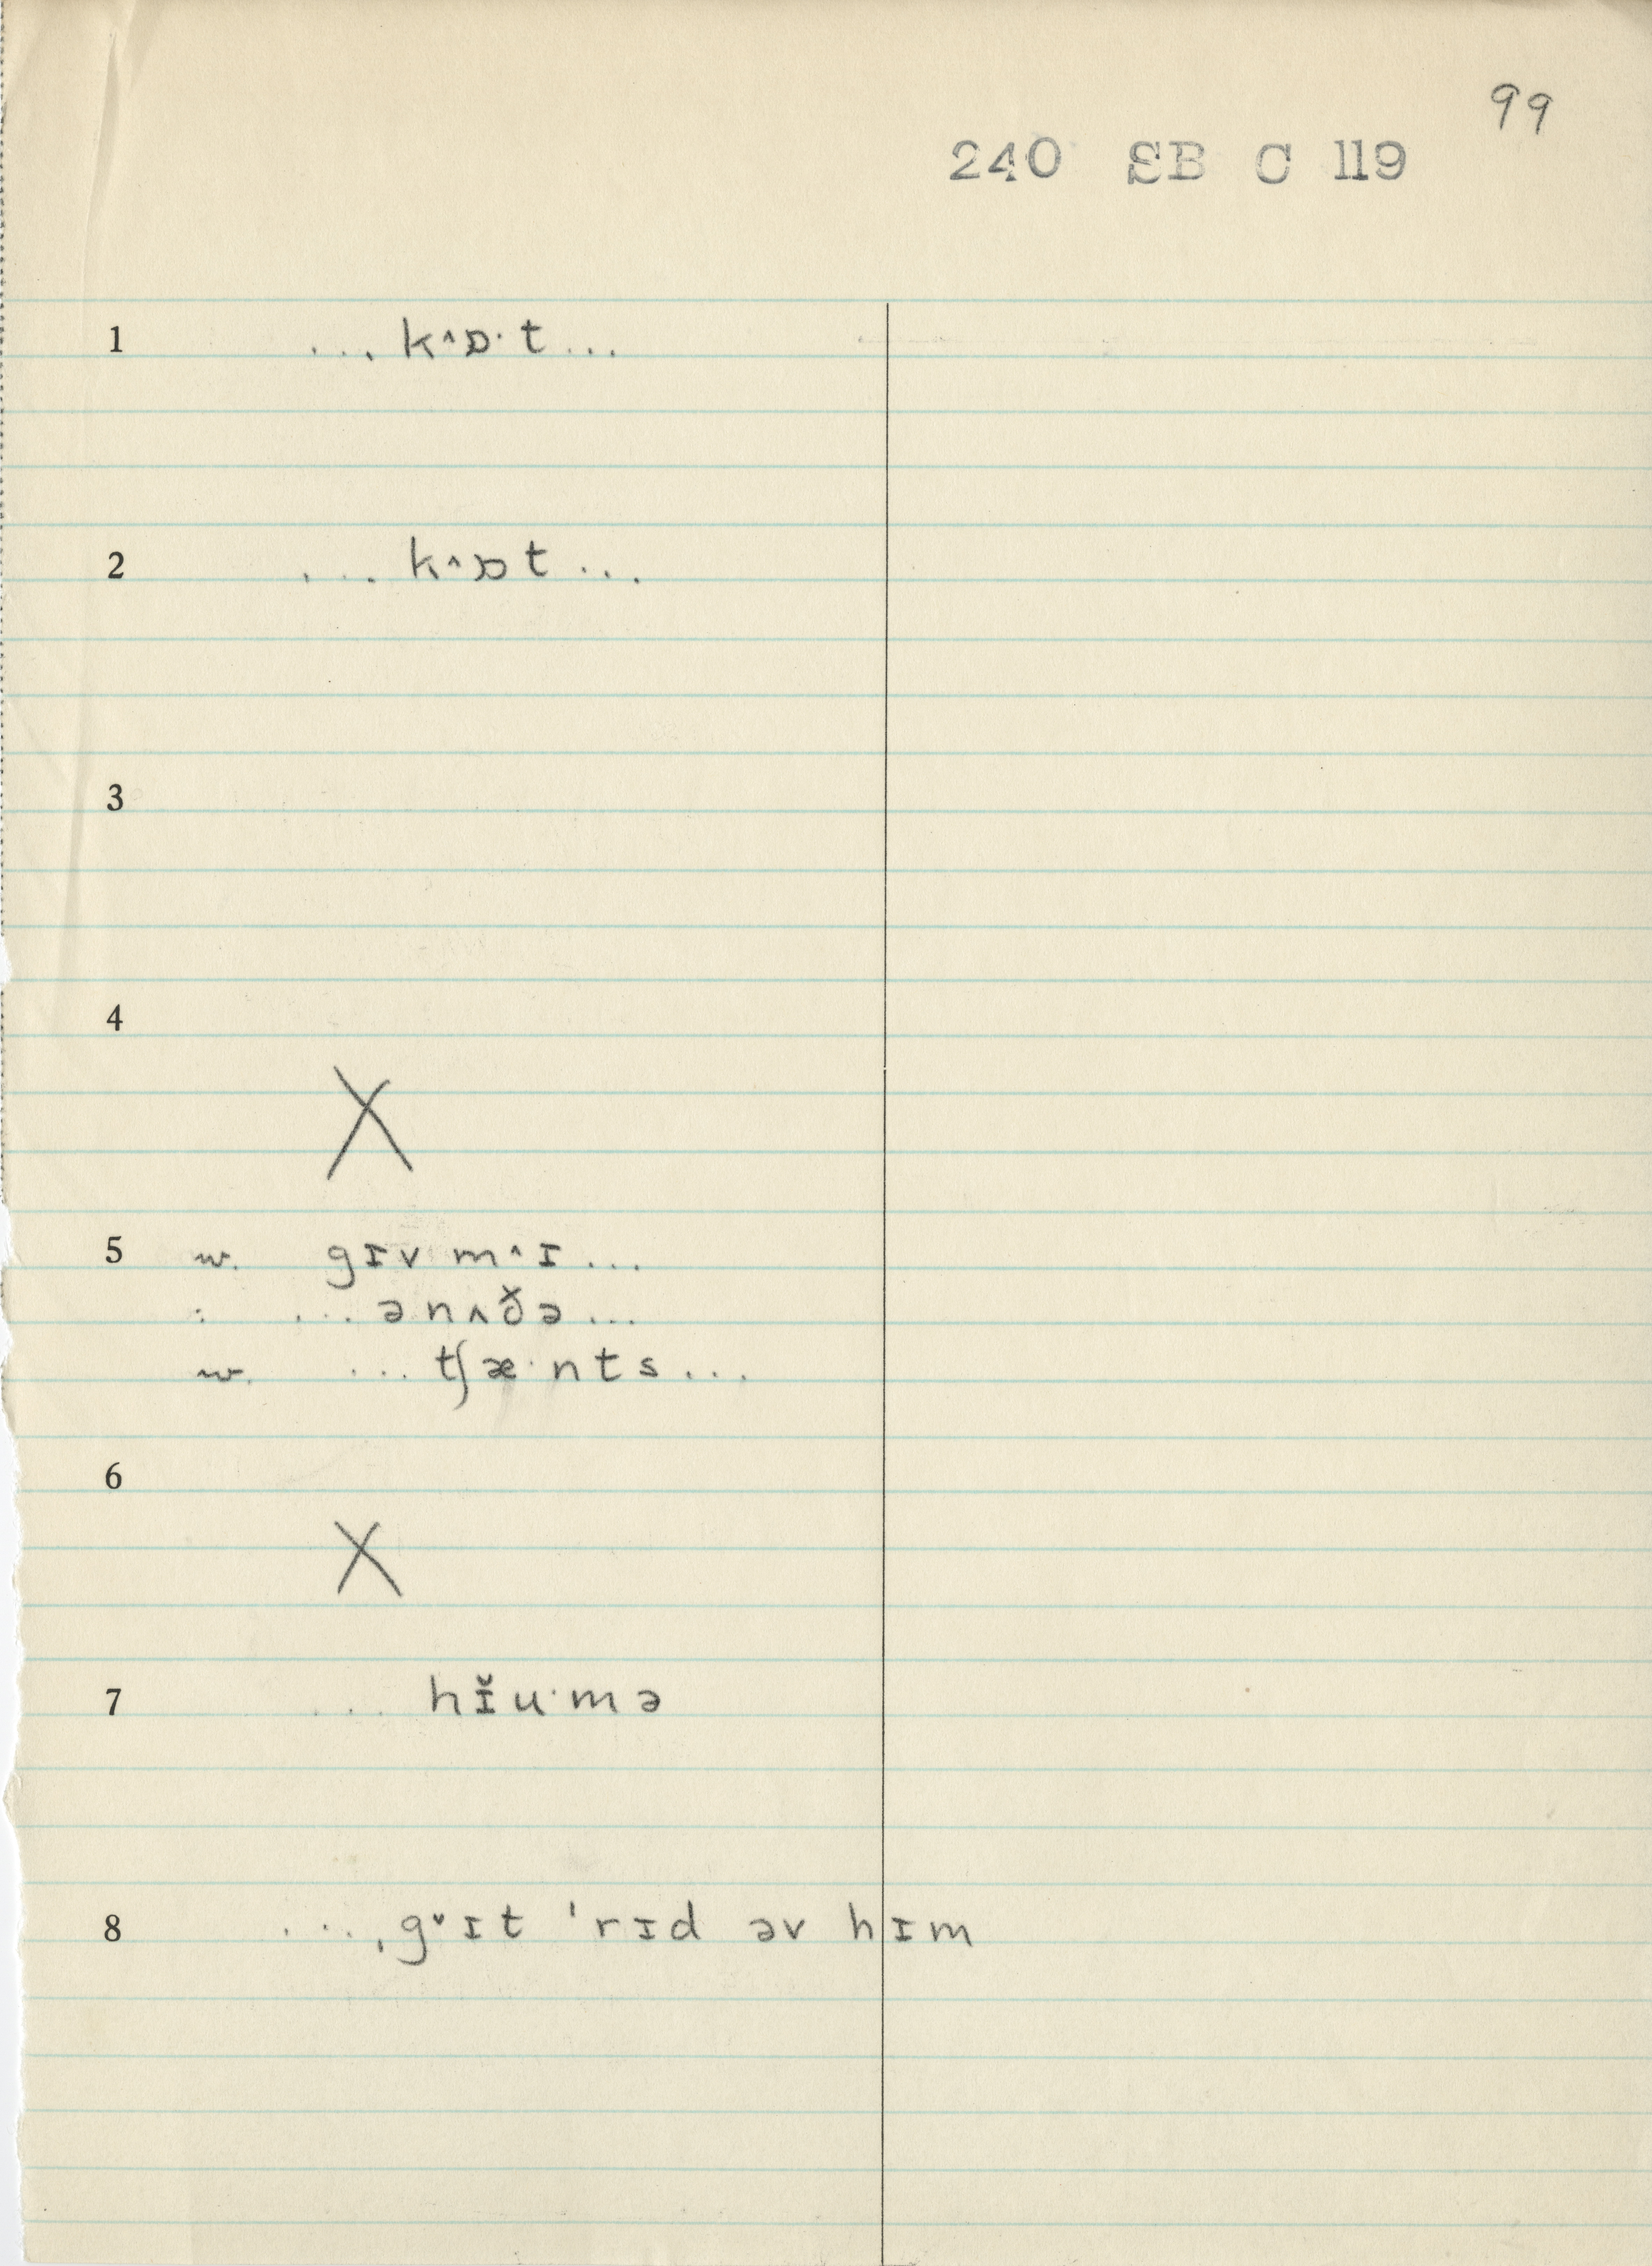 99
240 SB C 119
1 ... k^ɒ·t ...
2 ... k^ɒt ...
3
4
X
5 w. gɪv m^ɪ ...
: ... ənʌð̌ə ...
w. ... tʃæ·nts ...
6
X
7 ... hɪ̆u·mə
8 ... ˌg˅ɪt ˈrɪd əv hɪm